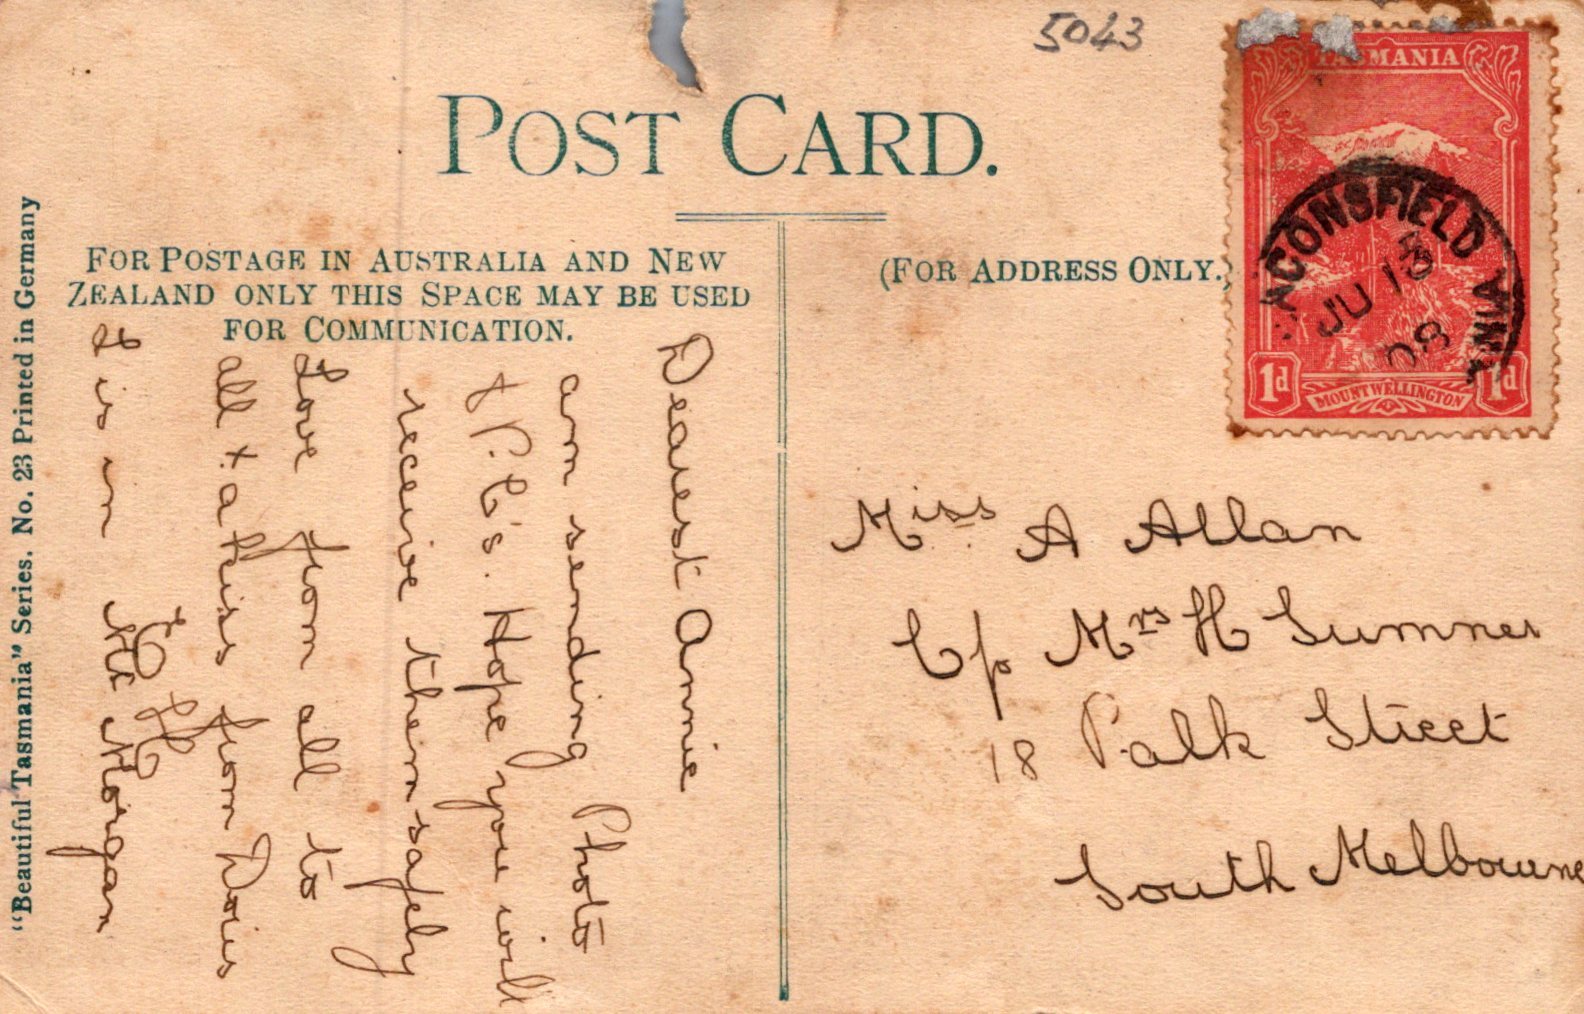 5043
POST CARD.
TASMANIA
ACONSFIELD
JU 13
08
1d 1d
MOUNT WELLINGTON
FOR POSTAGE IN AUSTRALIA AND NEW
ZEALAND ONLY THIS SPACE MAY BE USED
FOR COMMUNICATION.
(FOR ADDRESS ONLY.)
"Beautiful Tasmania" Series. No. 23 Printed in Germany
Dearest Annie
am sending Photo
& P.C's. Hope you will
receive them safely
Love from all to
all + a kiss from Doris
I is in Mr Morgan
Miss A Allan
C/o Mrs H Sumner
18 Palk Street
South Melbourne